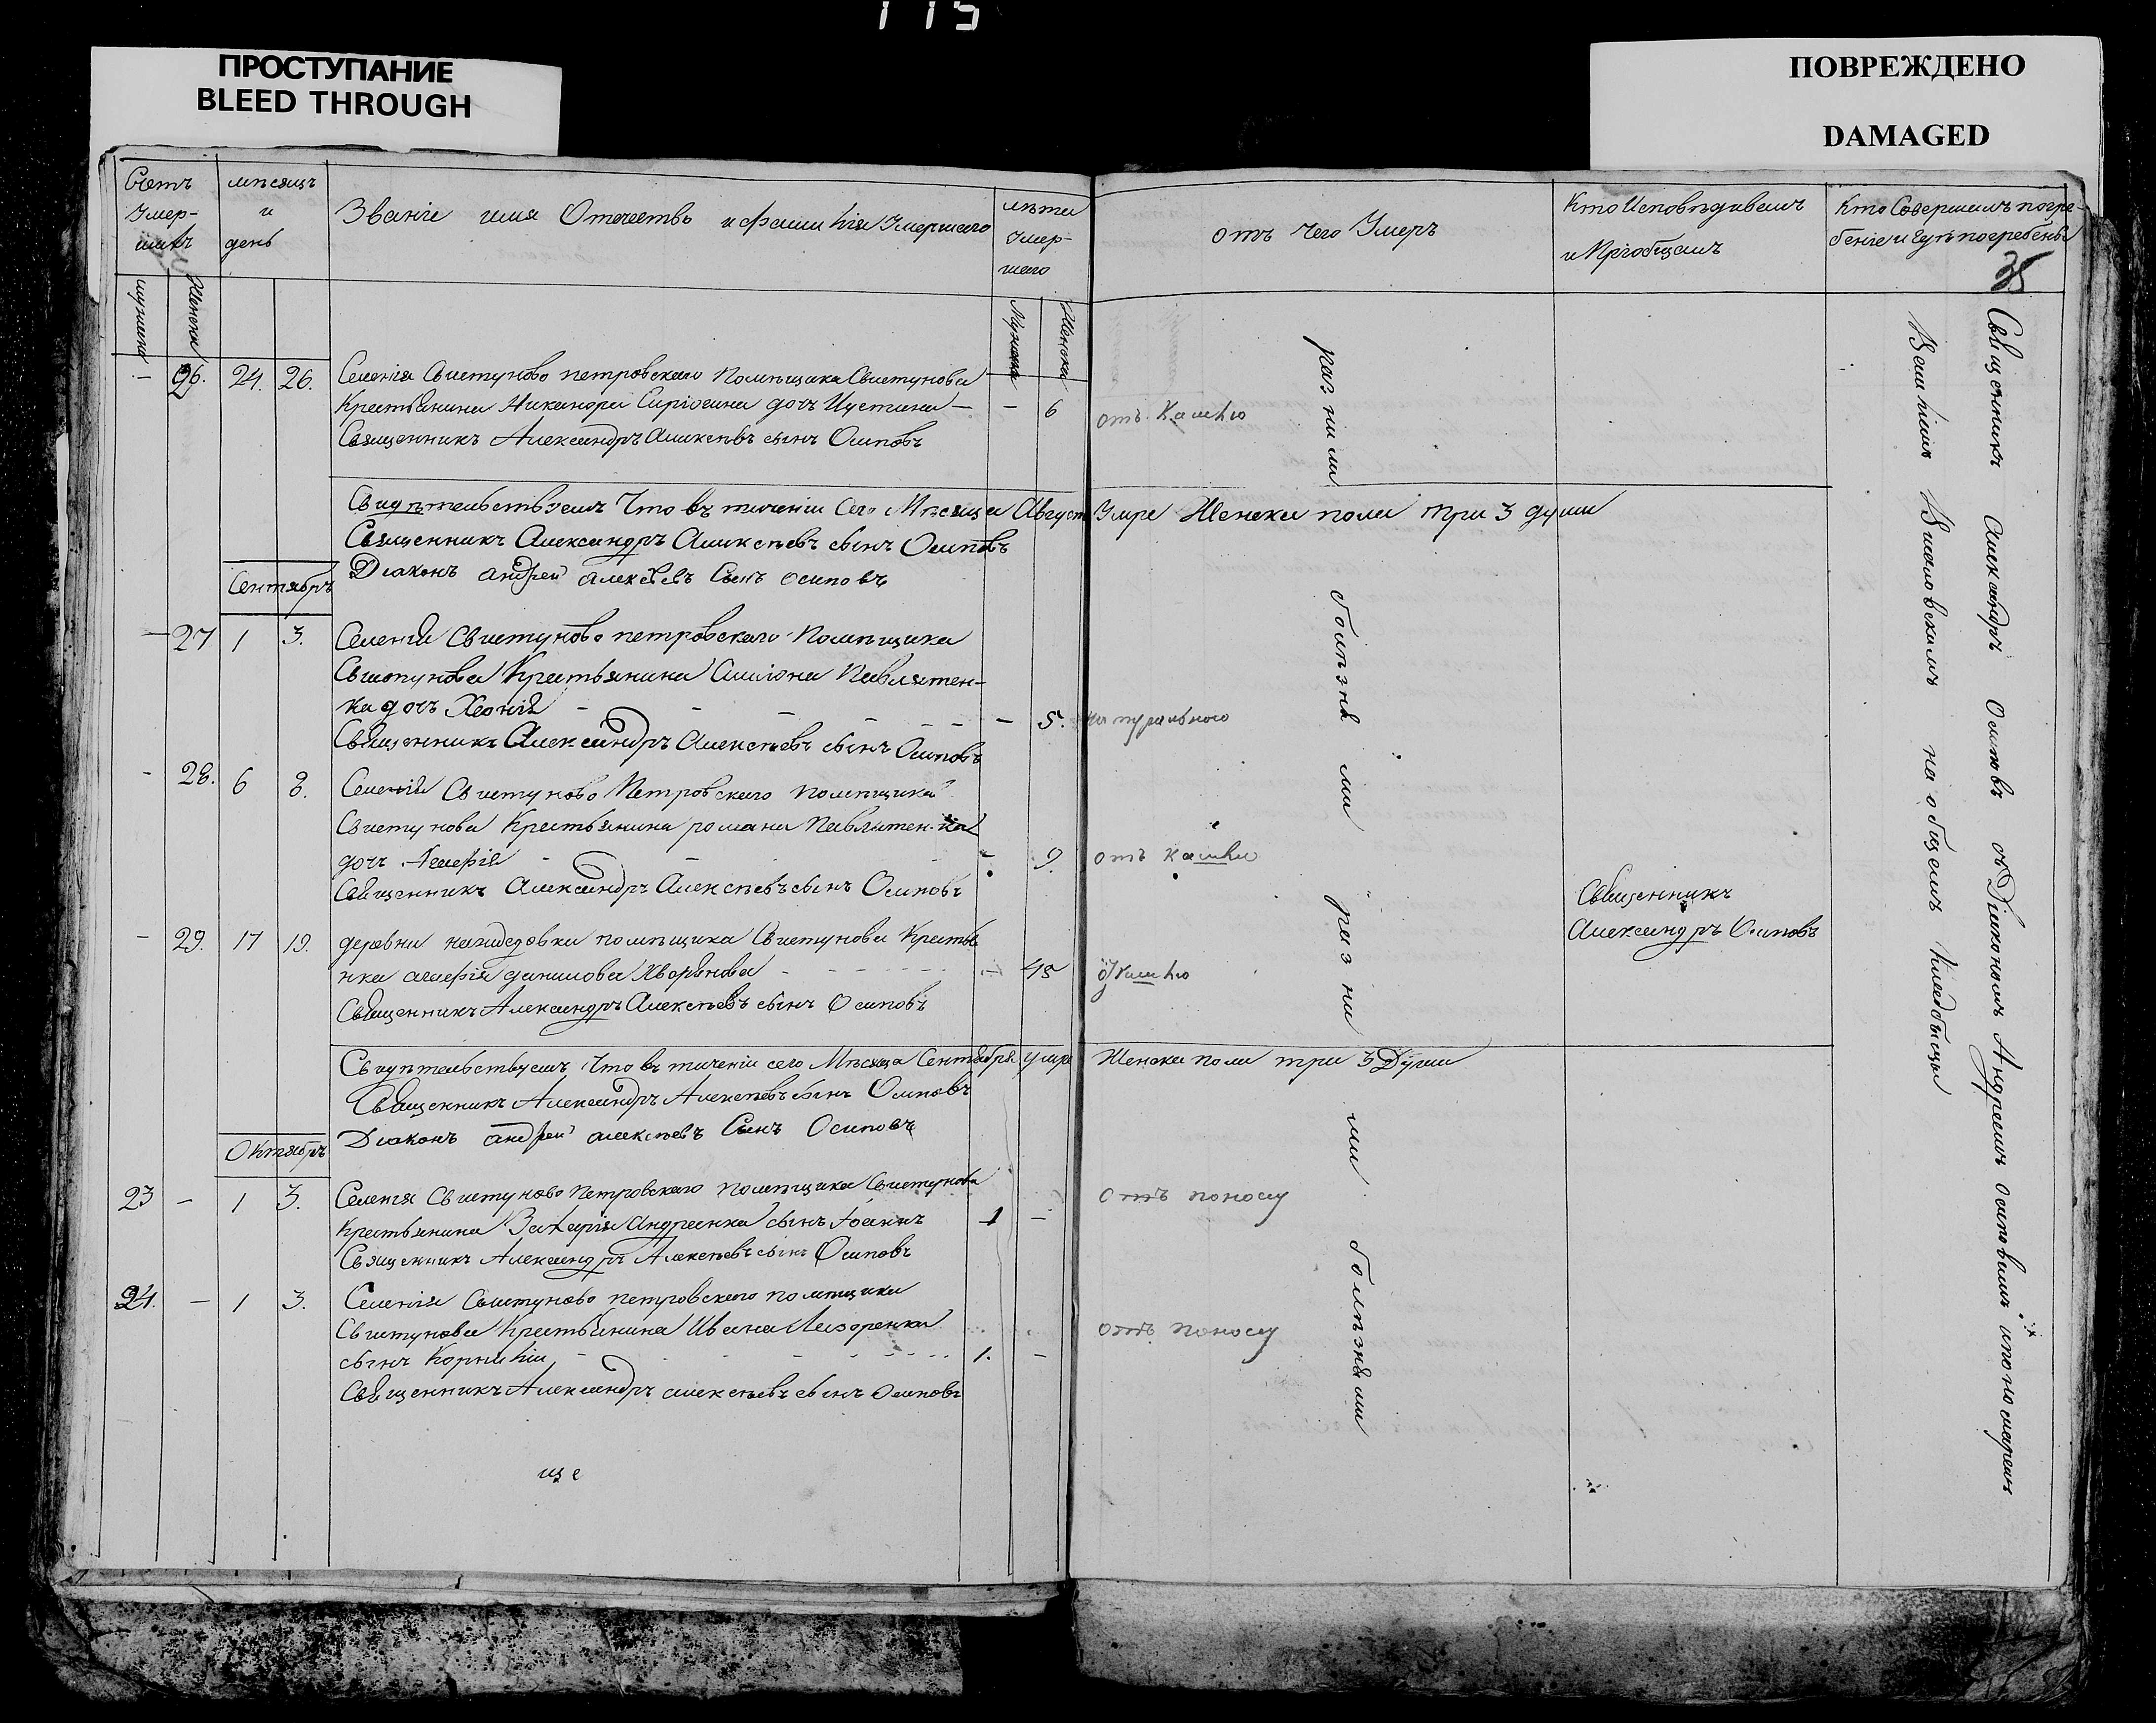 115
ПРОСТУПАНИЕ
BLEED THROUGH
ПОВРЕЖДЕНО
DAMAGED
Счетъ Умер-шихъ
мѣсяцъ и день
Званіе имя Отечество и фамилія Умершаго
лѣта Умер-шаго
отъ чего Умеръ
Кто Исповѣдывалъ и Пріобщалъ
Кто Совершалъ погре-беніе и гдѣ погребены
35
мужеска
Женска
Мужеска
Женска
— 26. 24. 26. Селенія Свистуново петровскаго Помѣщика Свистунова
Крестьянина Никанора дочь Иустина — — 6 отъ Кашлю
Священникъ Александръ Алексѣевъ сынъ Осиповъ
Свидѣтельствуемъ Что въ теченіи Сего Мѣсяца Август Умре Женска пола три 3 души
Священникъ Александръ Алексѣевъ сынъ Осиповъ
Діаконъ андрей алексѣевъ Сынъ осиповъ
Сентябръ
— 27 1 3. Селенія Свистуново петровскаго Помѣщика
Свистунова Крестьянина Павлятен-
ка дочь — 5. натуральною
Священникъ Александръ Алексѣевъ сынъ Осиповъ
- 28. 6 8. Селенія Свистуново Петровскаго помѣщика
Свистунова Крестьянина романа Павлятен-ка
дочь - 9. отъ кашлю
Священникъ Александръ Алексѣевъ сынъ Осиповъ
- 29. 17 19. деревни помѣщика Свистунова Крестья
нка данилова — 45 Кашлю
Священникъ Александръ Алексѣевъ сынъ Осиповъ
Священникъ
Александръ Осиповъ
Свидѣтельствуемъ Что въ теченіи сего Мѣсяца Сентября умре Женска пола три 3 Души
Священникъ Александръ Алексѣевъ сынъ Осиповъ
Діаконъ андрей алексѣевъ Сынъ Осиповъ
Октябръ
23 — 1 3. Селенія Свистуново Петровскаго помѣщика Свистунова
Крестьянина Захарія Андреенка сынъ Іоаннъ 1 — отъ поносу
Священникъ Александръ Алексѣевъ сынъ Осиповъ
24. — 1 3. Селенія Свистуново петровского помѣщика
Свистунова Крестьянина Ивана Лазаренка
сынъ Корнилій 1. — отъ поносу
Священникъ Александръ алексѣевъ сынъ Осиповъ
разними болѣзнями разними болѣзнями
Священникъ Александръ Осиповъ съ Діакономъ Андреемъ Осиповымъ и пономаремъ
на общемъ Кладбищы